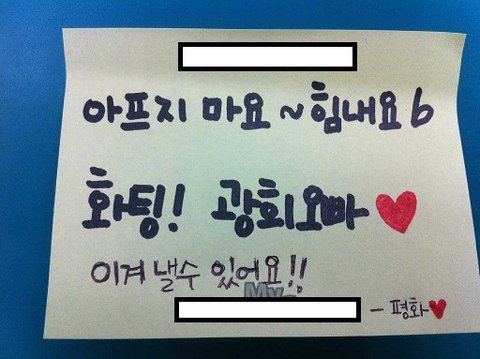 아프지 마요 ~ 힘내요 6
화팅! 광희오빠 ♥
이겨 낼수 있어요!!
My
- 평화 ♥